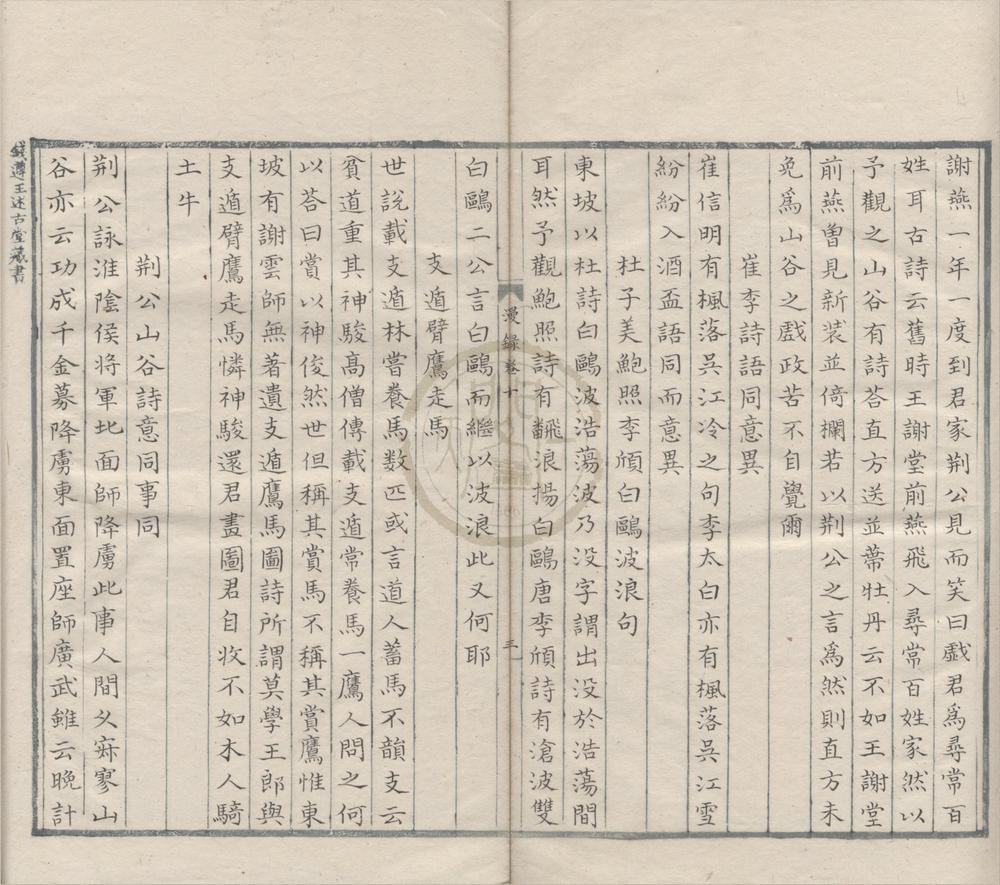 謝燕一年一度到君家荆公見而笑曰戯君爲尋常百
姓耳古詩云舊時王謝堂前燕飛入尋常百姓家然以
予觀之山谷有詩荅直方送並蔕牡丹云不如王謝堂
前燕曽見新装並倚欄若以荆公之言爲然則直方未
免爲山谷之戲政苦不自覺爾
崔李詩語同意異
崔信明有楓落吳江冷之句李太白亦有楓落吳江雪
紛紛入酒盃語同而意異
杜子美鮑照李頎白鷗波浪句
東坡以杜詩白鷗波浩蕩波乃没字謂出没於浩蕩間
耳然予觀鮑照詩有翻浪揚白鷗唐李頎詩有滄波雙
白鷗二公言白鷗而繼以波浪此又何耶
漫録卷十
三
支遁臂鷹走馬
世説載支遁林嘗養馬数匹或言道人蓄馬不韻支云
貧道重其神駿高僧傳載支遁常養馬一鷹人問之何
以荅曰賞以神俊然世但稱其賞馬不稱其賞鷹惟東
坡有謝雲師無著遺支遁鷹馬圖詩所謂莫學王郎與
支遁臂鷹走馬憐神駿還君畫圖君自收不如木人騎
土牛
荆公山谷詩意同事同
荆公詠淮陰侯將軍北面師降虜此事人間久寂寥山
谷亦云功成千金募降虜東面置座師廣武雖云晚計
錢遵王述古堂藏書